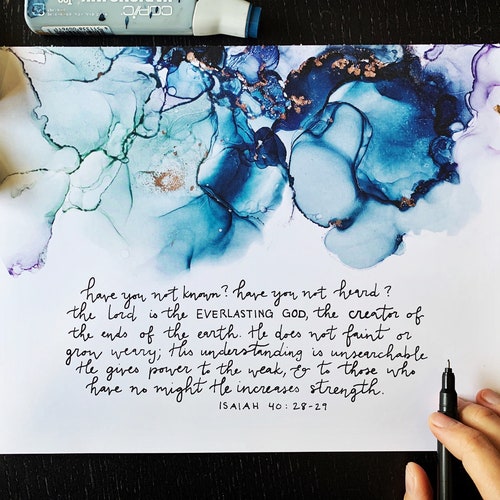 COPIC
have you not known? have you not heard?
the Lord is the EVERLASTING GOD, the creator of
the ends of the earth. He does not faint or
grow weary; His understanding is unsearchable
He gives power to the weak, & to those who
have no might He increases strength.
ISAIAH 40:28-29